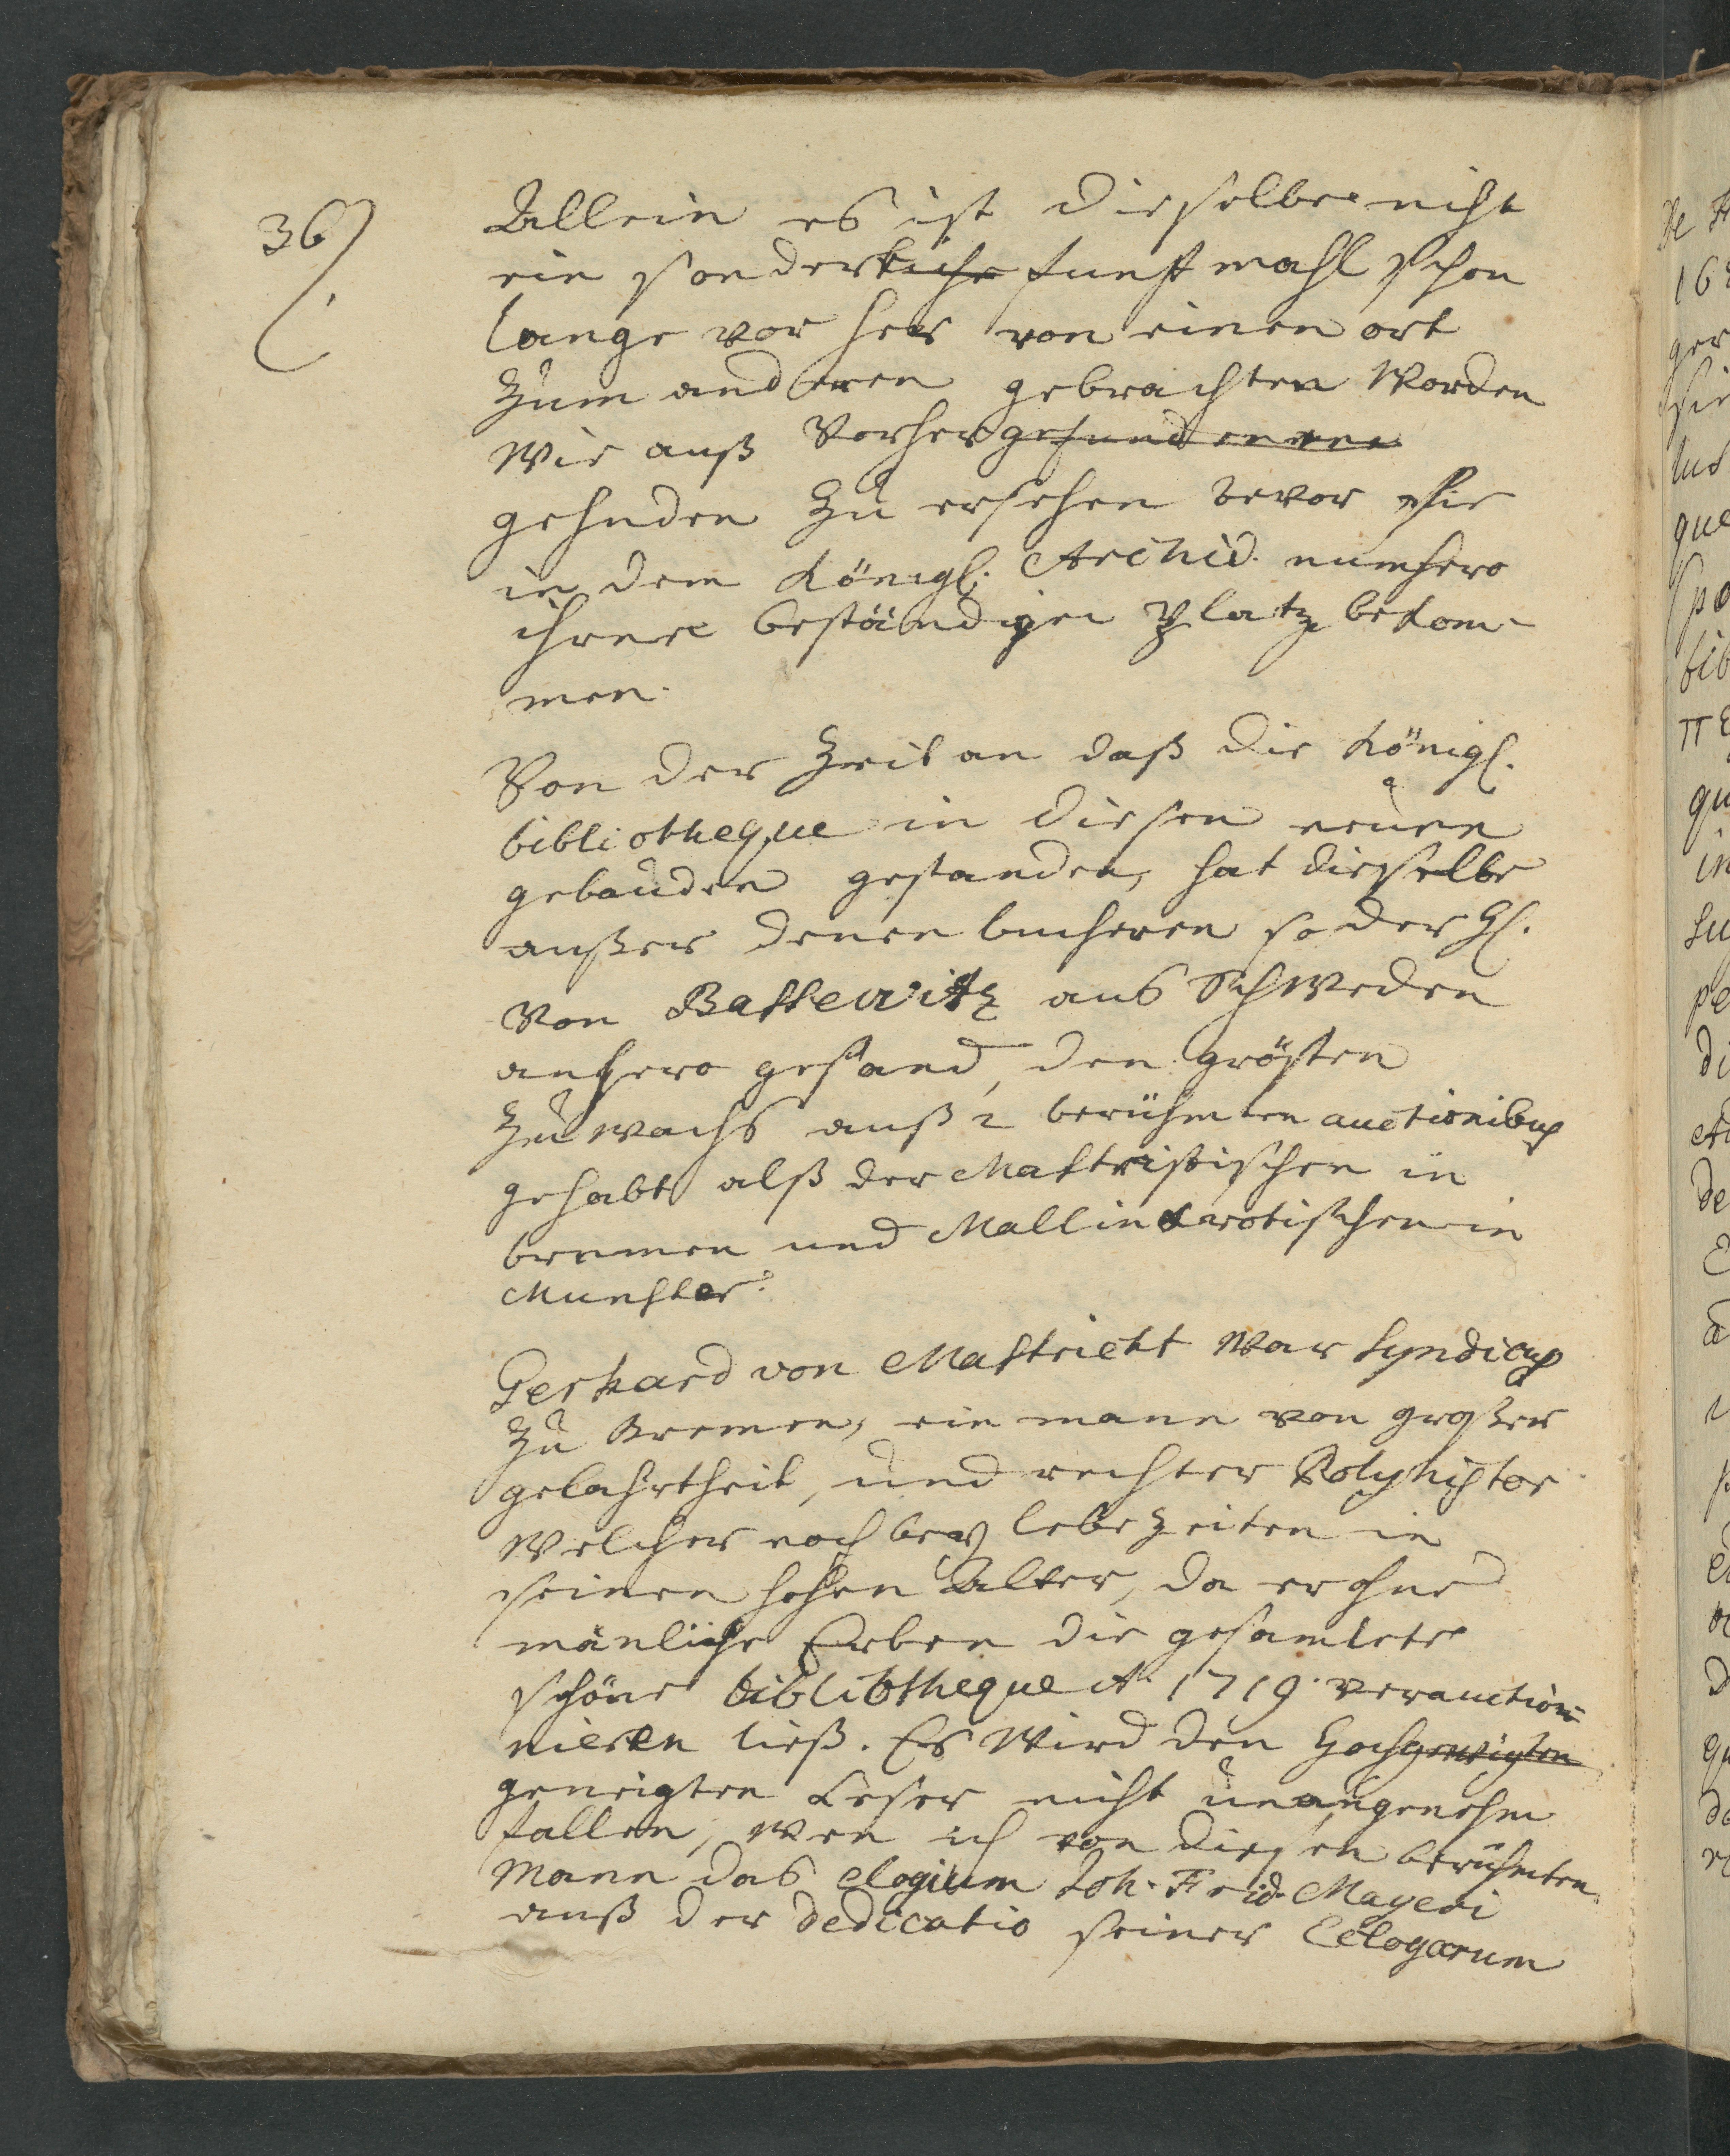 36
Allein es ist dieselbe nicht
ein sonderliche funffmahl schon
lange vor her von einen ort
zum anderen gebrachten worden
wie auß vorhergefundenene
gehnden zu ersehen bevor sie
in dem Königl. Archid. numhero
ihren beständigen Platz bekom-
men.
Von der Zeit an daß die Königl.
bibliotheque in diesen neuen
gebäuden gestanden, hat dieselbe
außer denen bucheren so der H.
von Bassewitz aus Schweden
anhero gesand, den grösten
Zuwachs auß 2 berühmten auctionibus
gehabt alß der Mastrichtischen in
bremen und Mallincrotischen in
Munster.
Gerhard von Mastricht war Syndicus
zu Bremen, ein mann von großer
gelahrtheit, und rechter Polyhistor
welcher noch bey lebezeiten in
seinen hohen Alter, da er ohne
mänliche Erben die gesamlete
schöne bibliotheque A. 1719. verauction-
nieren ließ. Es wird den Hochgeneigten
geneigten Leser nicht unangenehm
fallen, wen ich von diesen berühmten
Mann das elogium Joh. Frid. Mayeri
auß der dedicatio seiner Eclogarum